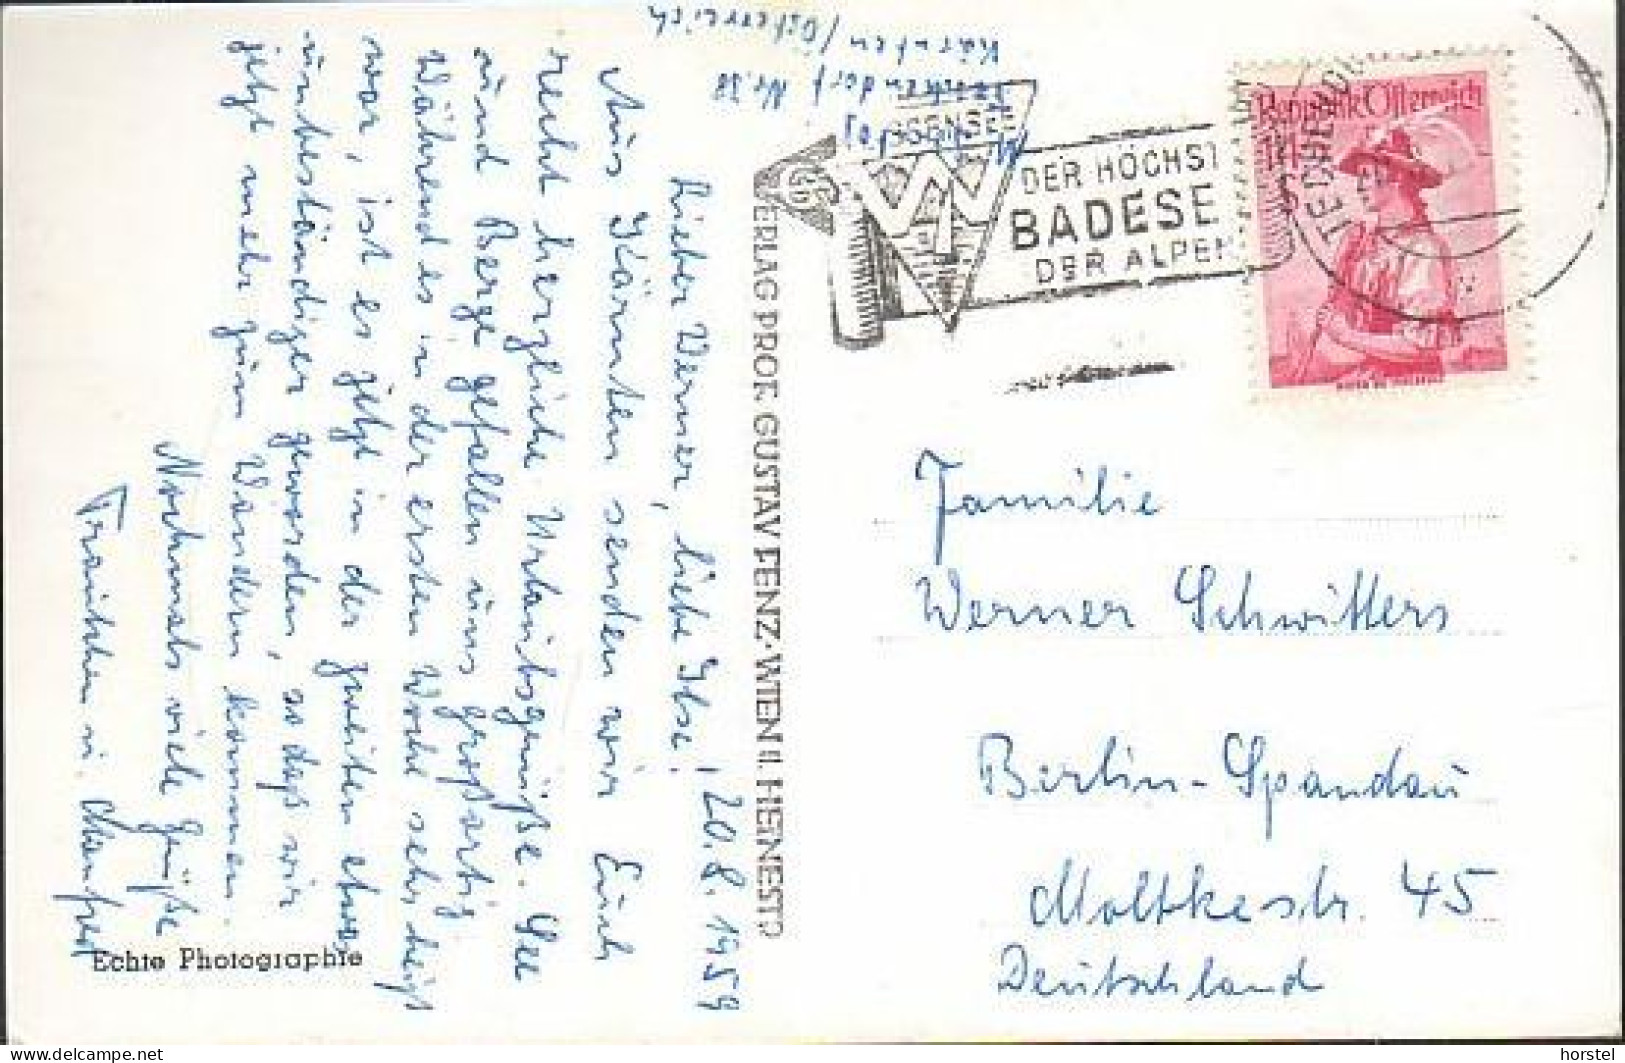 Kärnten / Österreich
Nr. 38
Lieber Werner, liebe Ilse! 20.8.1959
Aus Kärnten senden wir Euch
recht herzliche Urlaubsgrüße. See
und Berge gefallen uns großartig
Während es in der ersten Woche sehr heiß
war, ist es jetzt in der zweiten etwas
unbeständiger geworden, so daß wir
jetzt mehr zum Wandern kommen.
Nochmals viele Grüße
Manfred
Echte Photographie
VERLAG PROF. GUSTAV FENZ·WIEN II. HEINESTR
DER HÖCHST
BADESE
DER ALPEN
Republik Österreich
Familie
Werner Schwitters
Berlin-Spandau
Moltkestr. 45
Deutschland
horstel